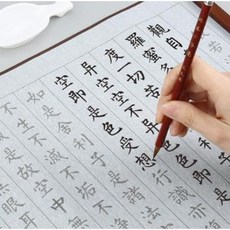 觀自
羅蜜多
度一切苦
異空空不異色色即是
空即是色受想行識亦
如是舍利子是諸法
不生不滅不垢不淨
是故空中無
眼耳